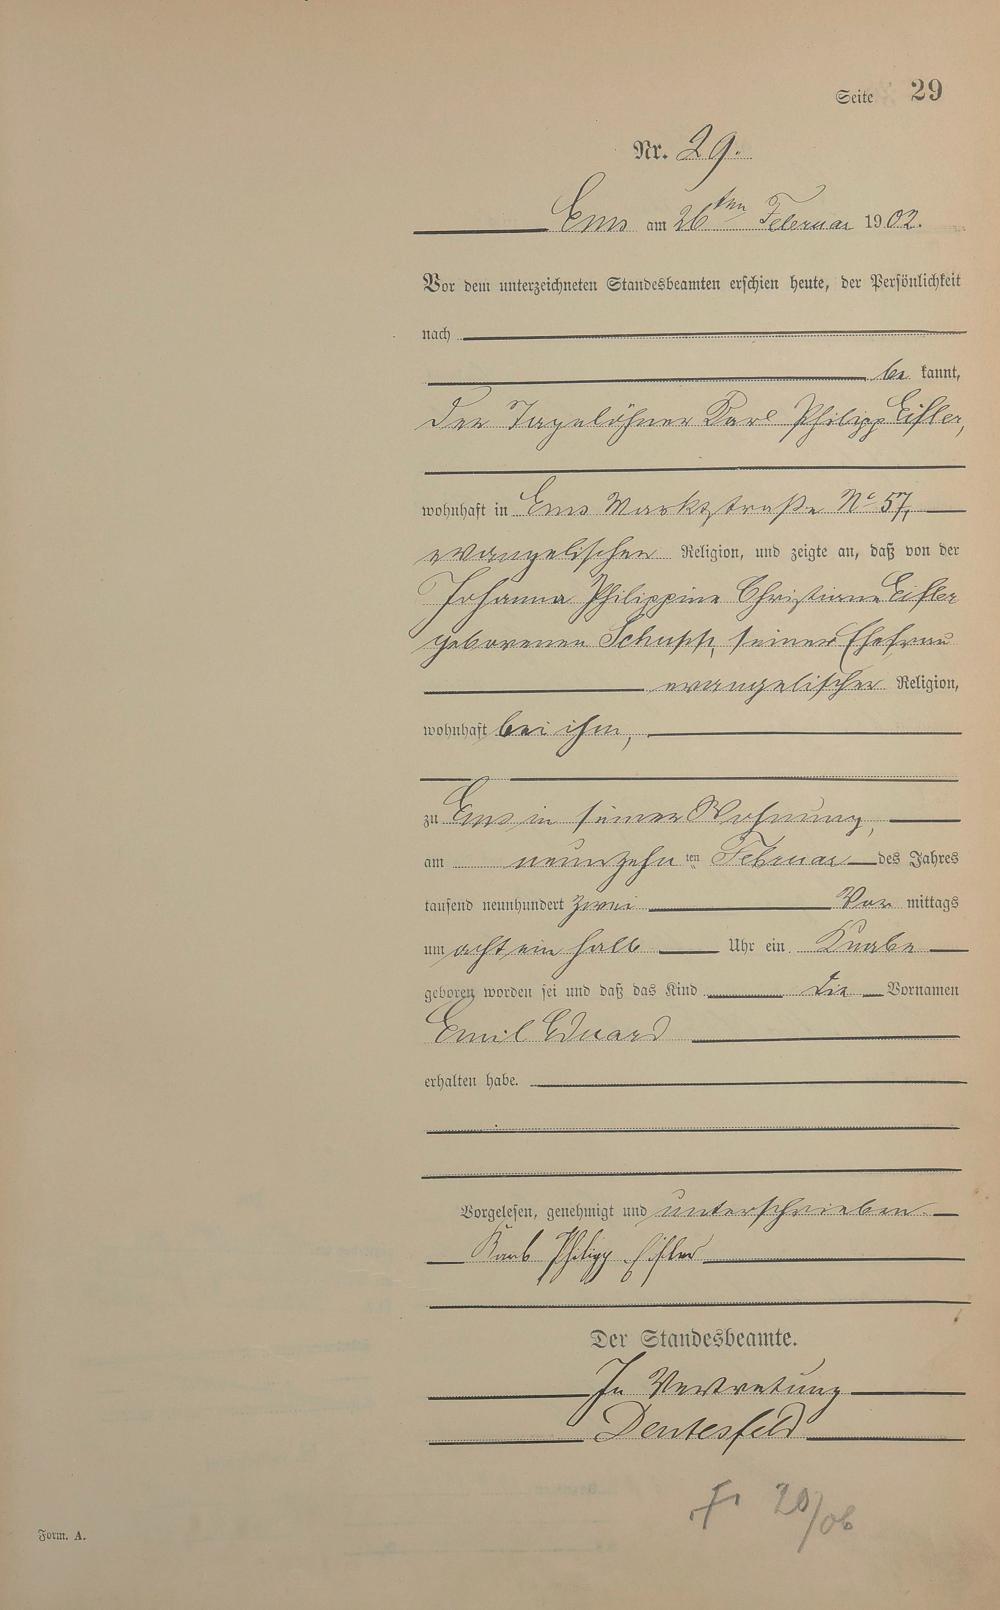 Seite 29
Nr. 29.
Ems am 26ten Februar 1902.
Vor dem unterzeichneten Standesbeamten erschien heute, der Persönlichkeit
nach
be kannt,
der Tagelöhner Karl Philipp Eisler,
wohnhaft in Ems Marktstraße No 57,
evangelischer Religion, und zeigte an, daß von der
Johanna Philippine Christiane Eisler
geborenen Schupp, seiner Ehefrau
evangelischer Religion,
wohnhaft bei ihm,
zu Ems in seiner Wohnung,
am neunzehn ten Februar des Jahres
tausend neunhundert zwei Vor mittags
um acht ein halb Uhr ein Knabe
geboren worden sei und daß das Kind die Vornamen
Emil Eduard
erhalten habe.
Vorgelesen, genehmigt und unterschrieben
Karl Philipp Eisler
Der Standesbeamte.
In Vertretung
20/06
Form. A.